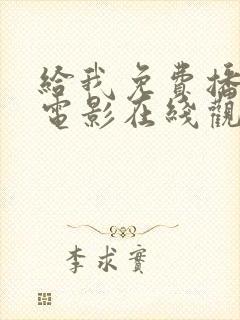 給我免費播
電影在綫觀
李求實